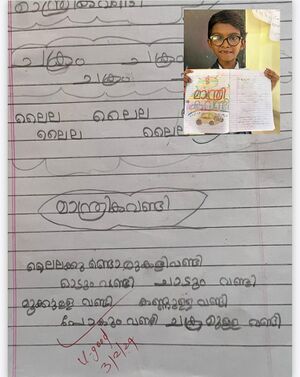 മാന്ത്രികവണ്ടി
ചക്രം ചക്രം
ചക്രം
ലൈല ലൈല
ലൈല ലൈല
മാന്ത്രികവണ്ടി
ലൈലക്കു ണ്ടൊരുകളിവണ്ടി
ഓടും വണ്ടി ചാടും വണ്ടി
മൂക്കുള്ള വണ്ടി കണ്ണുള്ള വണ്ടി
പോകും വണ്ടി ചക്ര മുള്ള വണ്ടി
V. good
3/2/24